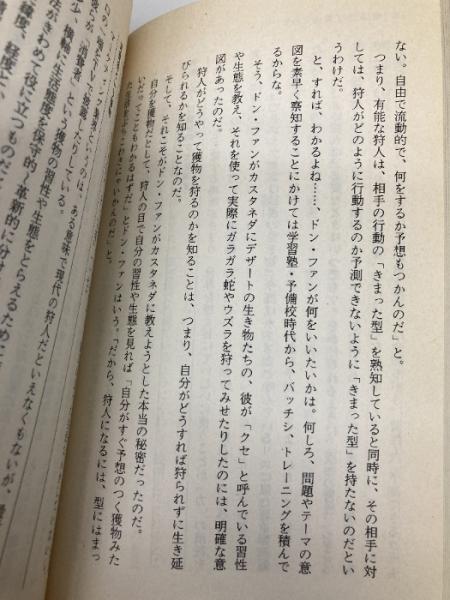 ない。自由で流動的で、何をするか予想もつかんのだ」と。
つまり、有能な狩人は、相手の行動の「きまった型」を熟知していると同時に、その相手に対
しては、狩人がどのように行動するのか予測できないように「きまった型」を持たないのだとい
うわけだ。
と、すれば、わかるよね……、ドン・ファンが何をいいたいかは。何しろ、問題やテーマの意
図を素早く察知することにかけては学習塾・予備校時代から、バッチシ、トレーニングを積んで
るからな。
そう、ドン・ファンがカスタネダにデザートの生き物たちの、彼が「クセ」と呼んでいる習性
や生態を教え、それを使って実際にガラガラ蛇やウズラを狩ってみせたりしたのには、明確な意
図があったのだ。
狩人がどうやって獲物を狩るのかを知ることは、つまり、自分がどうすれば狩られずに生き延
びられるかを知ることなのだ。
そして、それこそがドン・ファンがカスタネダに教えようとした本当の秘密だったのだ。
自分を獲物だとして、狩人の目で自分の習性や生態を見れば「自分がすぐ予想のつく獲物みた
いだってこともわかるはずだ」とドン・ファンはいう。「だから、狩人になるには、型にはまっ
ある意味で現代の狩人だといえなくもないが、
という獲物の習性や生態をとらえるために
横軸に生活態度を保守的、革新的に分け
法がきわめて役に立つものだと